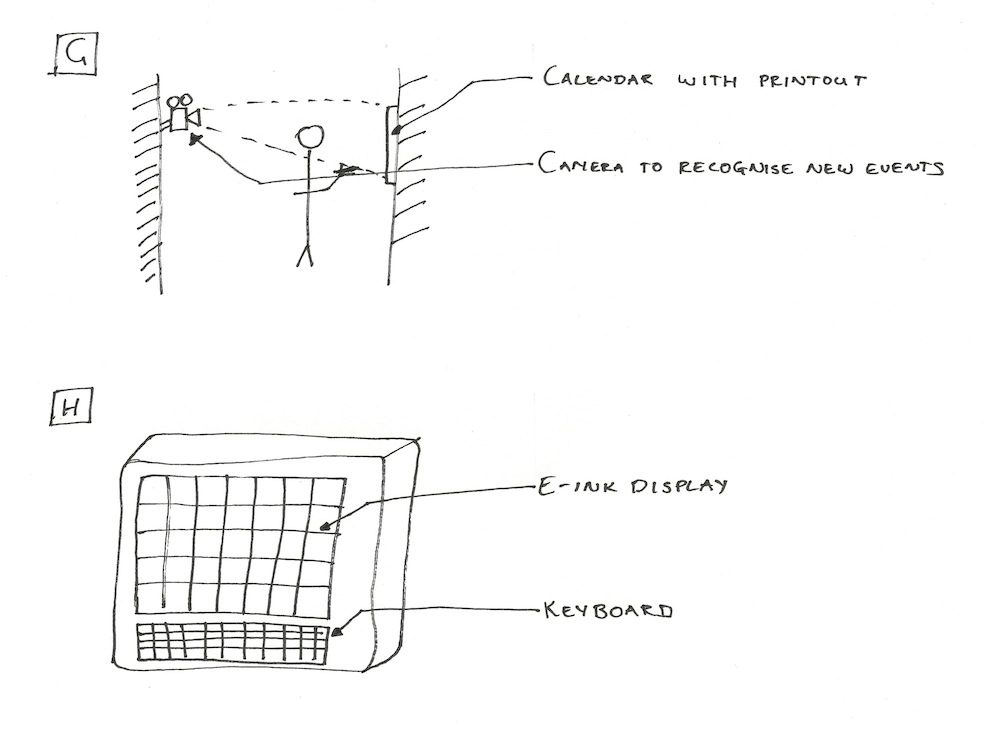 G
CALENDAR WITH PRINTOUT
CAMERA TO RECOGNISE NEW EVENTS
H
E-INK DISPLAY
KEYBOARD